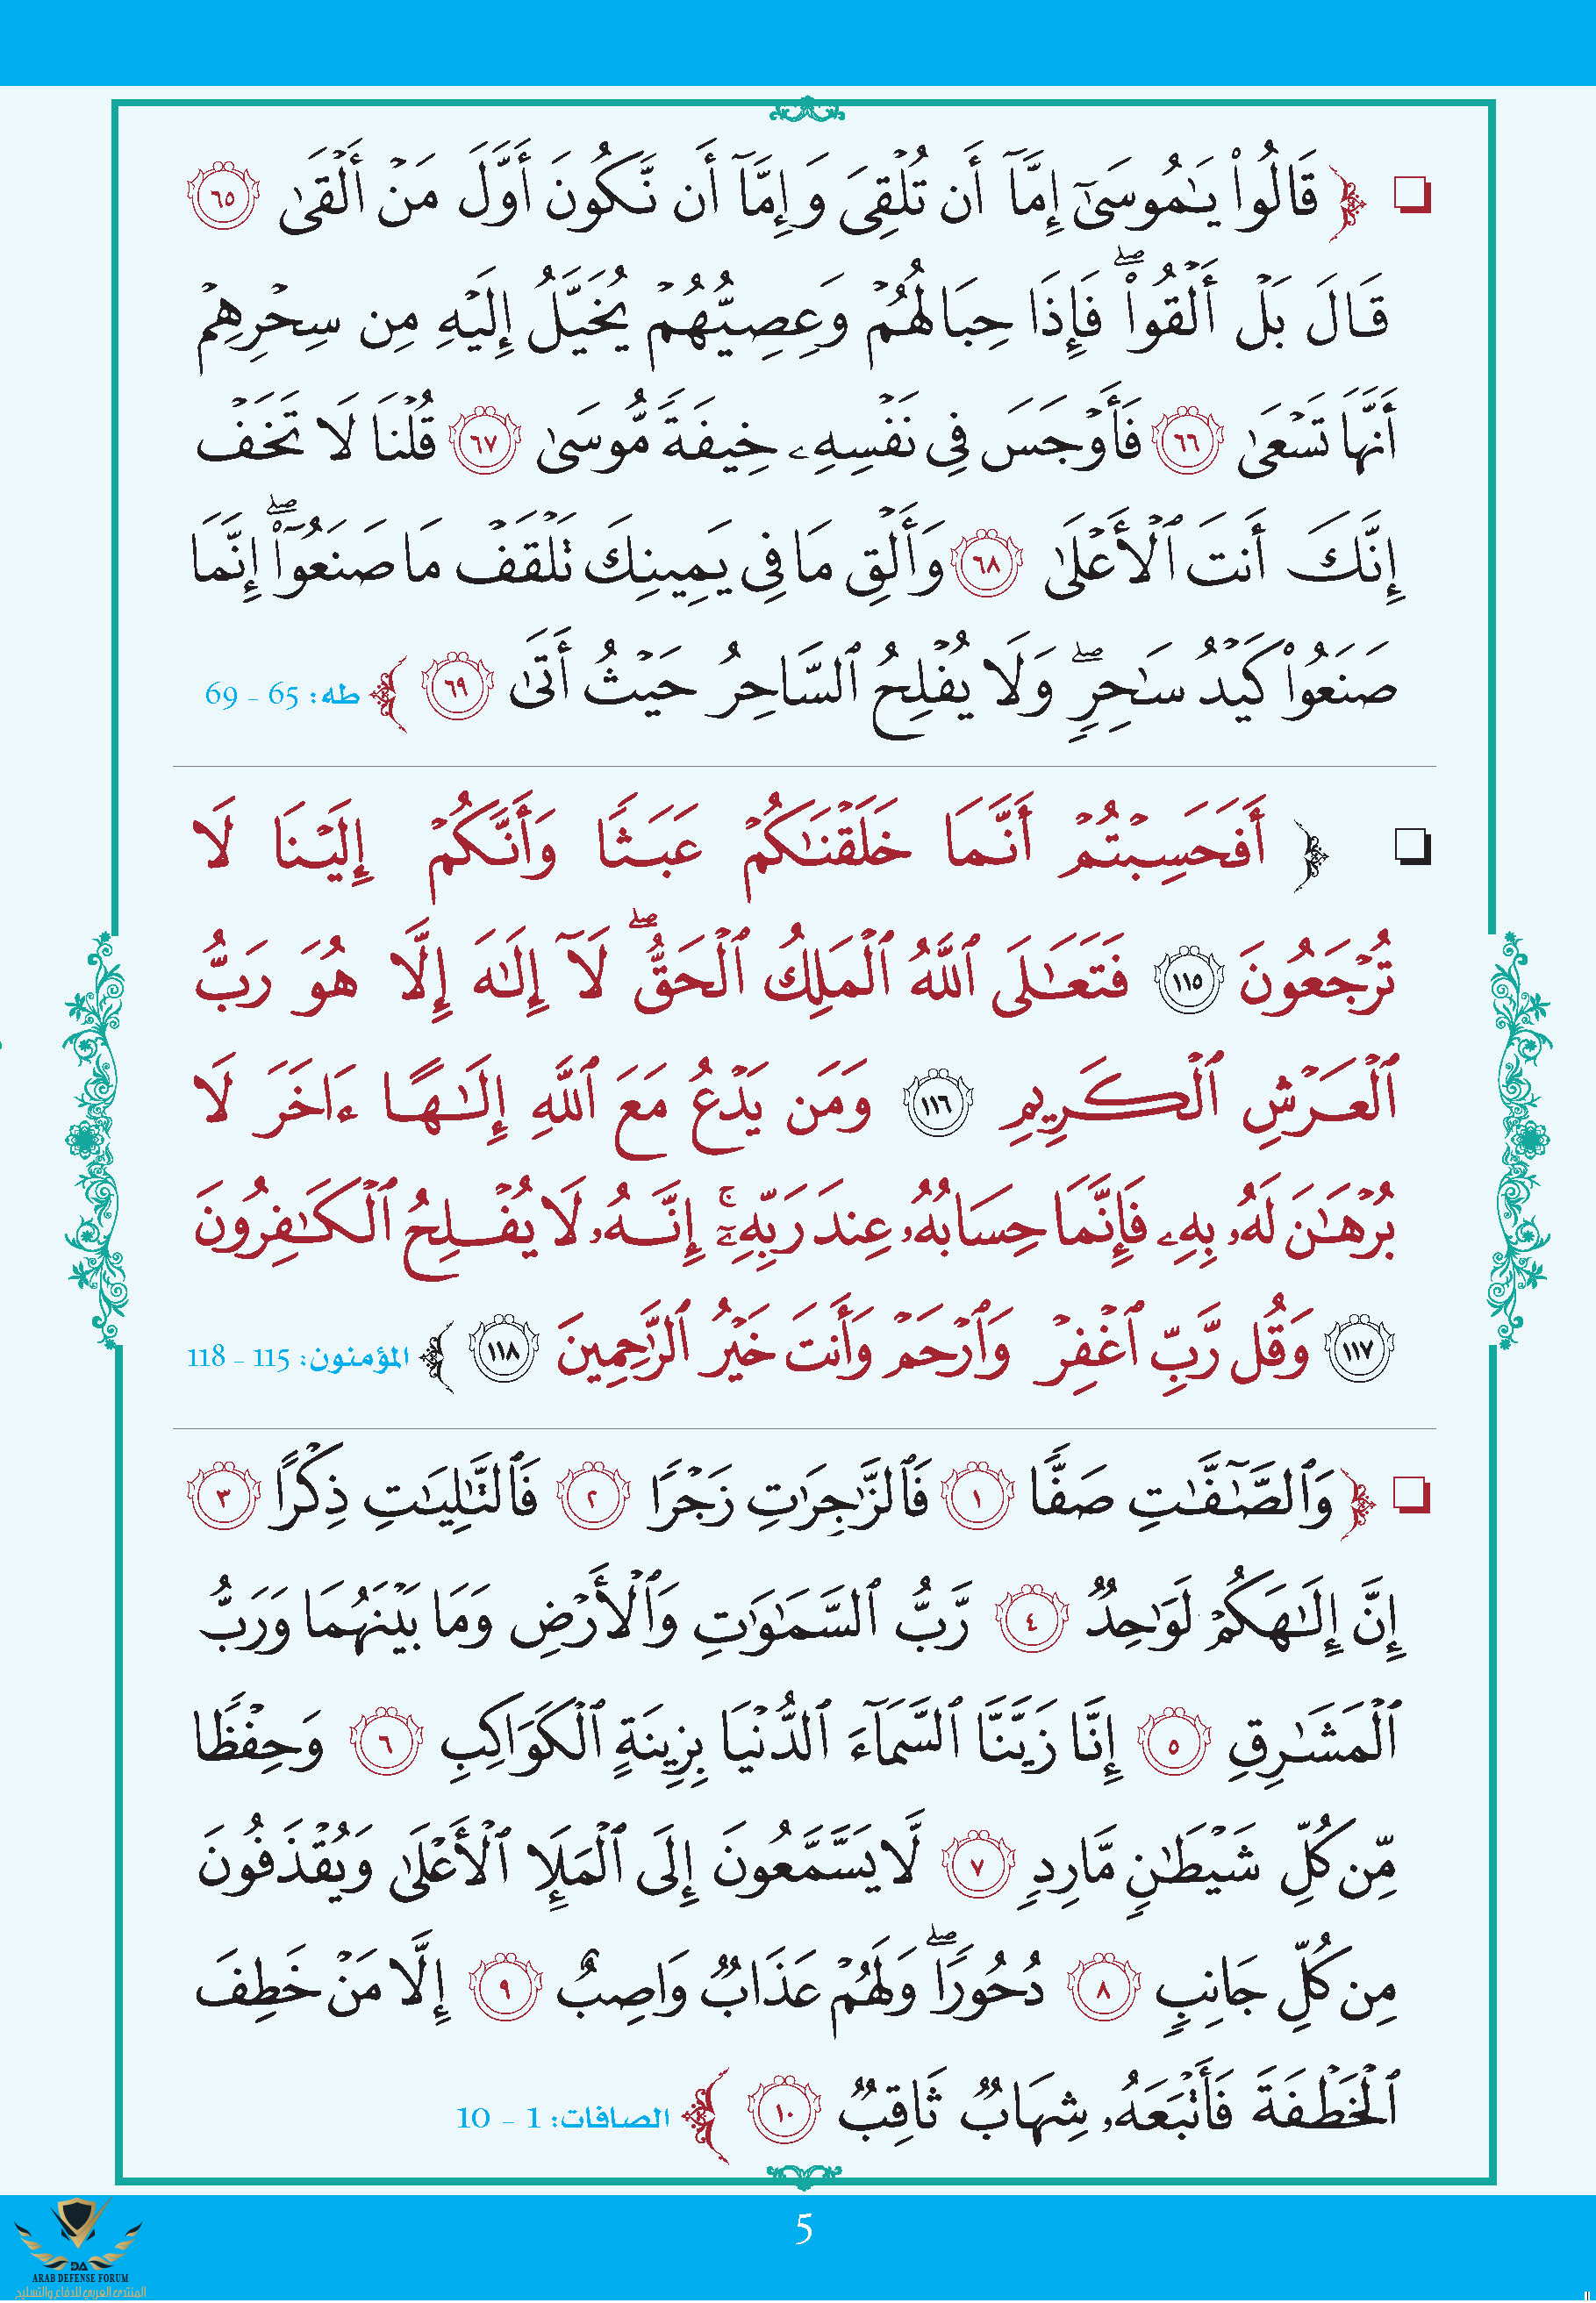 ❏ ﴿ قَالُواْ يَٰمُوسَىٰٓ إِمَّآ أَن تُلۡقِيَ وَإِمَّآ أَن نَّكُونَ أَوَّلَ مَنۡ أَلۡقَىٰ ٦٥
قَالَ بَلۡ أَلۡقُواْۖ فَإِذَا حِبَالُهُمۡ وَعِصِيُّهُمۡ يُخَيَّلُ إِلَيۡهِ مِن سِحۡرِهِمۡ
أَنَّهَا تَسۡعَىٰ ٦٦ فَأَوۡجَسَ فِي نَفۡسِهِۦ خِيفَةٗ مُّوسَىٰ ٦٧ قُلۡنَا لَا تَخَفۡ
إِنَّكَ أَنتَ ٱلۡأَعۡلَىٰ ٦٨ وَأَلۡقِ مَا فِي يَمِينِكَ تَلۡقَفۡ مَا صَنَعُوٓاْۖ إِنَّمَا
صَنَعُواْ كَيۡدُ سَٰحِرٖۖ وَلَا يُفۡلِحُ ٱلسَّاحِرُ حَيۡثُ أَتَىٰ ٦٩ ﴾ طه: 65 - 69
❏ ﴿ أَفَحَسِبۡتُمۡ أَنَّمَا خَلَقۡنَٰكُمۡ عَبَثٗا وَأَنَّكُمۡ إِلَيۡنَا لَا
تُرۡجَعُونَ ١١٥ فَتَعَٰلَى ٱللَّهُ ٱلۡمَلِكُ ٱلۡحَقُّۖ لَآ إِلَٰهَ إِلَّا هُوَ رَبُّ
ٱلۡعَرۡشِ ٱلۡكَرِيمِ ١١٦ وَمَن يَدۡعُ مَعَ ٱللَّهِ إِلَٰهًا ءَاخَرَ لَا
بُرۡهَٰنَ لَهُۥ بِهِۦ فَإِنَّمَا حِسَابُهُۥ عِندَ رَبِّهِۦٓۚ إِنَّهُۥ لَا يُفۡلِحُ ٱلۡكَٰفِرُونَ
١١٧ وَقُل رَّبِّ ٱغۡفِرۡ وَٱرۡحَمۡ وَأَنتَ خَيۡرُ ٱلرَّٰحِمِينَ ١١٨ ﴾ المؤمنون: 115 - 118
❏ ﴿ وَٱلصَّٰٓفَّٰتِ صَفّٗا ١ فَٱلزَّٰجِرَٰتِ زَجۡرٗا ٢ فَٱلتَّٰلِيَٰتِ ذِكۡرًا ٣
إِنَّ إِلَٰهَكُمۡ لَوَٰحِدٞ ٤ رَّبُّ ٱلسَّمَٰوَٰتِ وَٱلۡأَرۡضِ وَمَا بَيۡنَهُمَا وَرَبُّ
ٱلۡمَشَٰرِقِ ٥ إِنَّا زَيَّنَّا ٱلسَّمَآءَ ٱلدُّنۡيَا بِزِينَةٍ ٱلۡكَوَاكِبِ ٦ وَحِفۡظٗا
مِّن كُلِّ شَيۡطَٰنٖ مَّارِدٖ ٧ لَّا يَسَّمَّعُونَ إِلَى ٱلۡمَلَإِ ٱلۡأَعۡلَىٰ وَيُقۡذَفُونَ
مِن كُلِّ جَانِبٖ ٨ دُحُورٗاۖ وَلَهُمۡ عَذَابٞ وَاصِبٌ ٩ إِلَّا مَنۡ خَطِفَ
ٱلۡخَطۡفَةَ فَأَتۡبَعَهُۥ شِهَابٞ ثَاقِبٞ ١٠ ﴾ الصافات: 1 - 10
5
DA
ARAB DEFENSE FORUM
المنتدى العربي للدفاع والتسليح